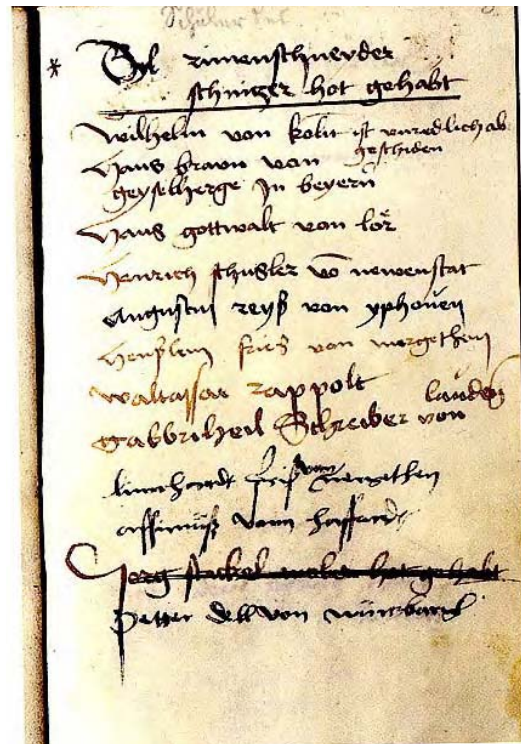 Schüler des
* Tyl rimenschneyder
schnitzer hot gehabt
wilhelm von koln ist unredlich ab
geschiden
Hans braun von
geyselherge Jn beyern
Hans gottwalt von lor
Heinrich schusler vo newenstat
Augustin reyß von yphouen
Henslein fries von mergetheim
waltassar rappolt
lauden
Gabbriheil Schreiber von
linnhardt friß von mergethen
assimuß vonn hassfardt
Jerg stackel maler hot gehabt
Petter dell von würczburg